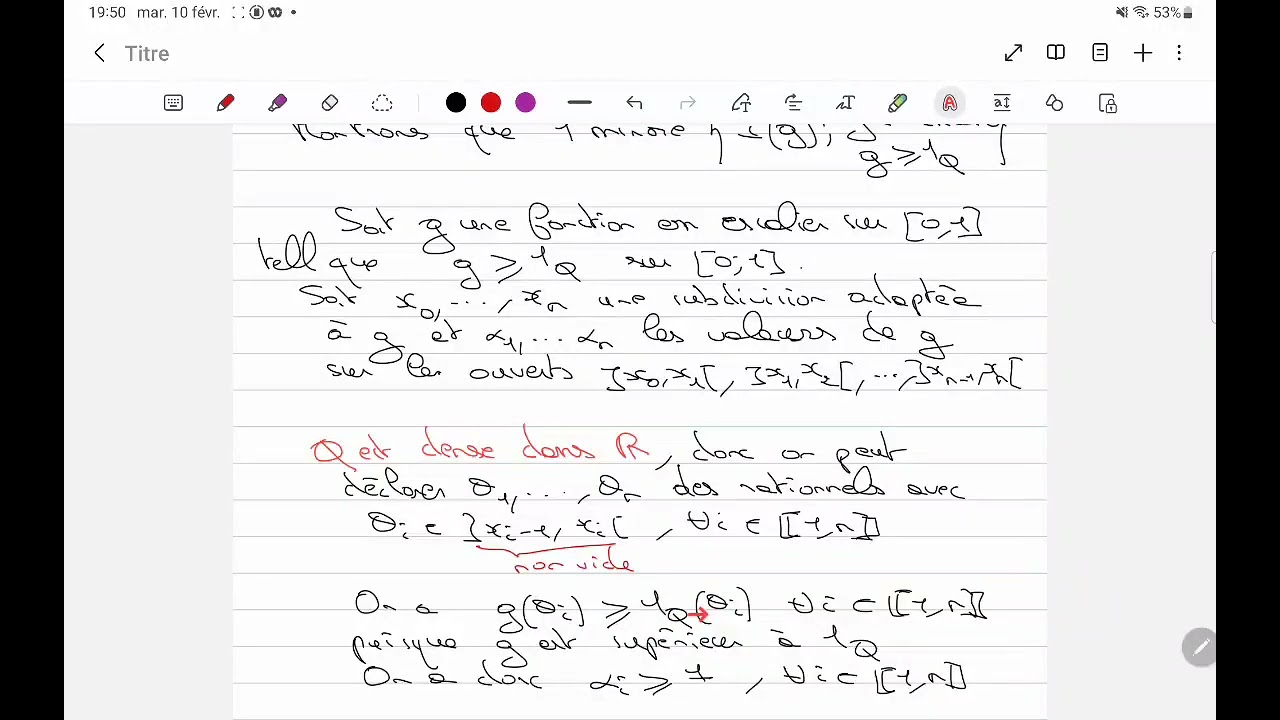 19:50 mar. 10 févr. 53%
Titre
Montrons que 1 minore { I(g);
g ⩾ 1_Q }
Soit g une fonction en escalier sur [0,1]
tell que g ⩾ 1_Q sur [0;1].
Soit x_0, ..., x_n une subdivision adaptée
à g et α_1, ... α_n les valeurs de g
sur les ouverts ]x_0, x_1[, ]x_1, x_2[, ..., ]x_{n-1}, x_n[
Q est dense dans R, donc on peut
déclarer θ_1, ..., θ_n des rationnels avec
θ_i ∈ ]x_{i-1}, x_i[, ∀i ∈ ⟦1,n⟧
non vide
On a g(θ_i) ⩾ 1_Q(θ_i) ∀i ∈ ⟦1,n⟧
puisque g est supérieur à 1_Q
On a donc α_i ⩾ 1, ∀i ∈ ⟦1,n⟧